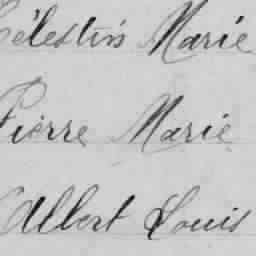 Célestin Marie
Pierre Marie
Albert Louis